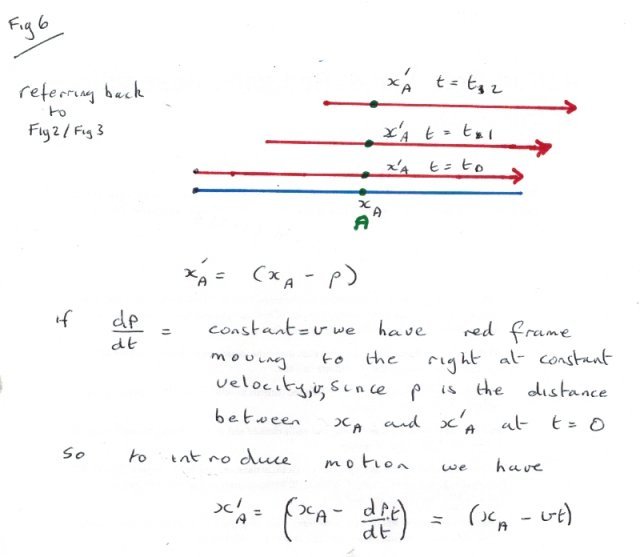 Fig 6
referring back
to
Fig2/Fig3
x'A t = t2
x'A t = t1
x'A t = t0
xA
A
x'A = (xA - ρ)
if dρ/dt = constant = v we have red frame
moving to the right at constant
velocity, v, since ρ is the distance
between xA and x'A at t = 0
So to introduce motion we have
x'A = (xA - dρ/dt.t) = (xA - vt)